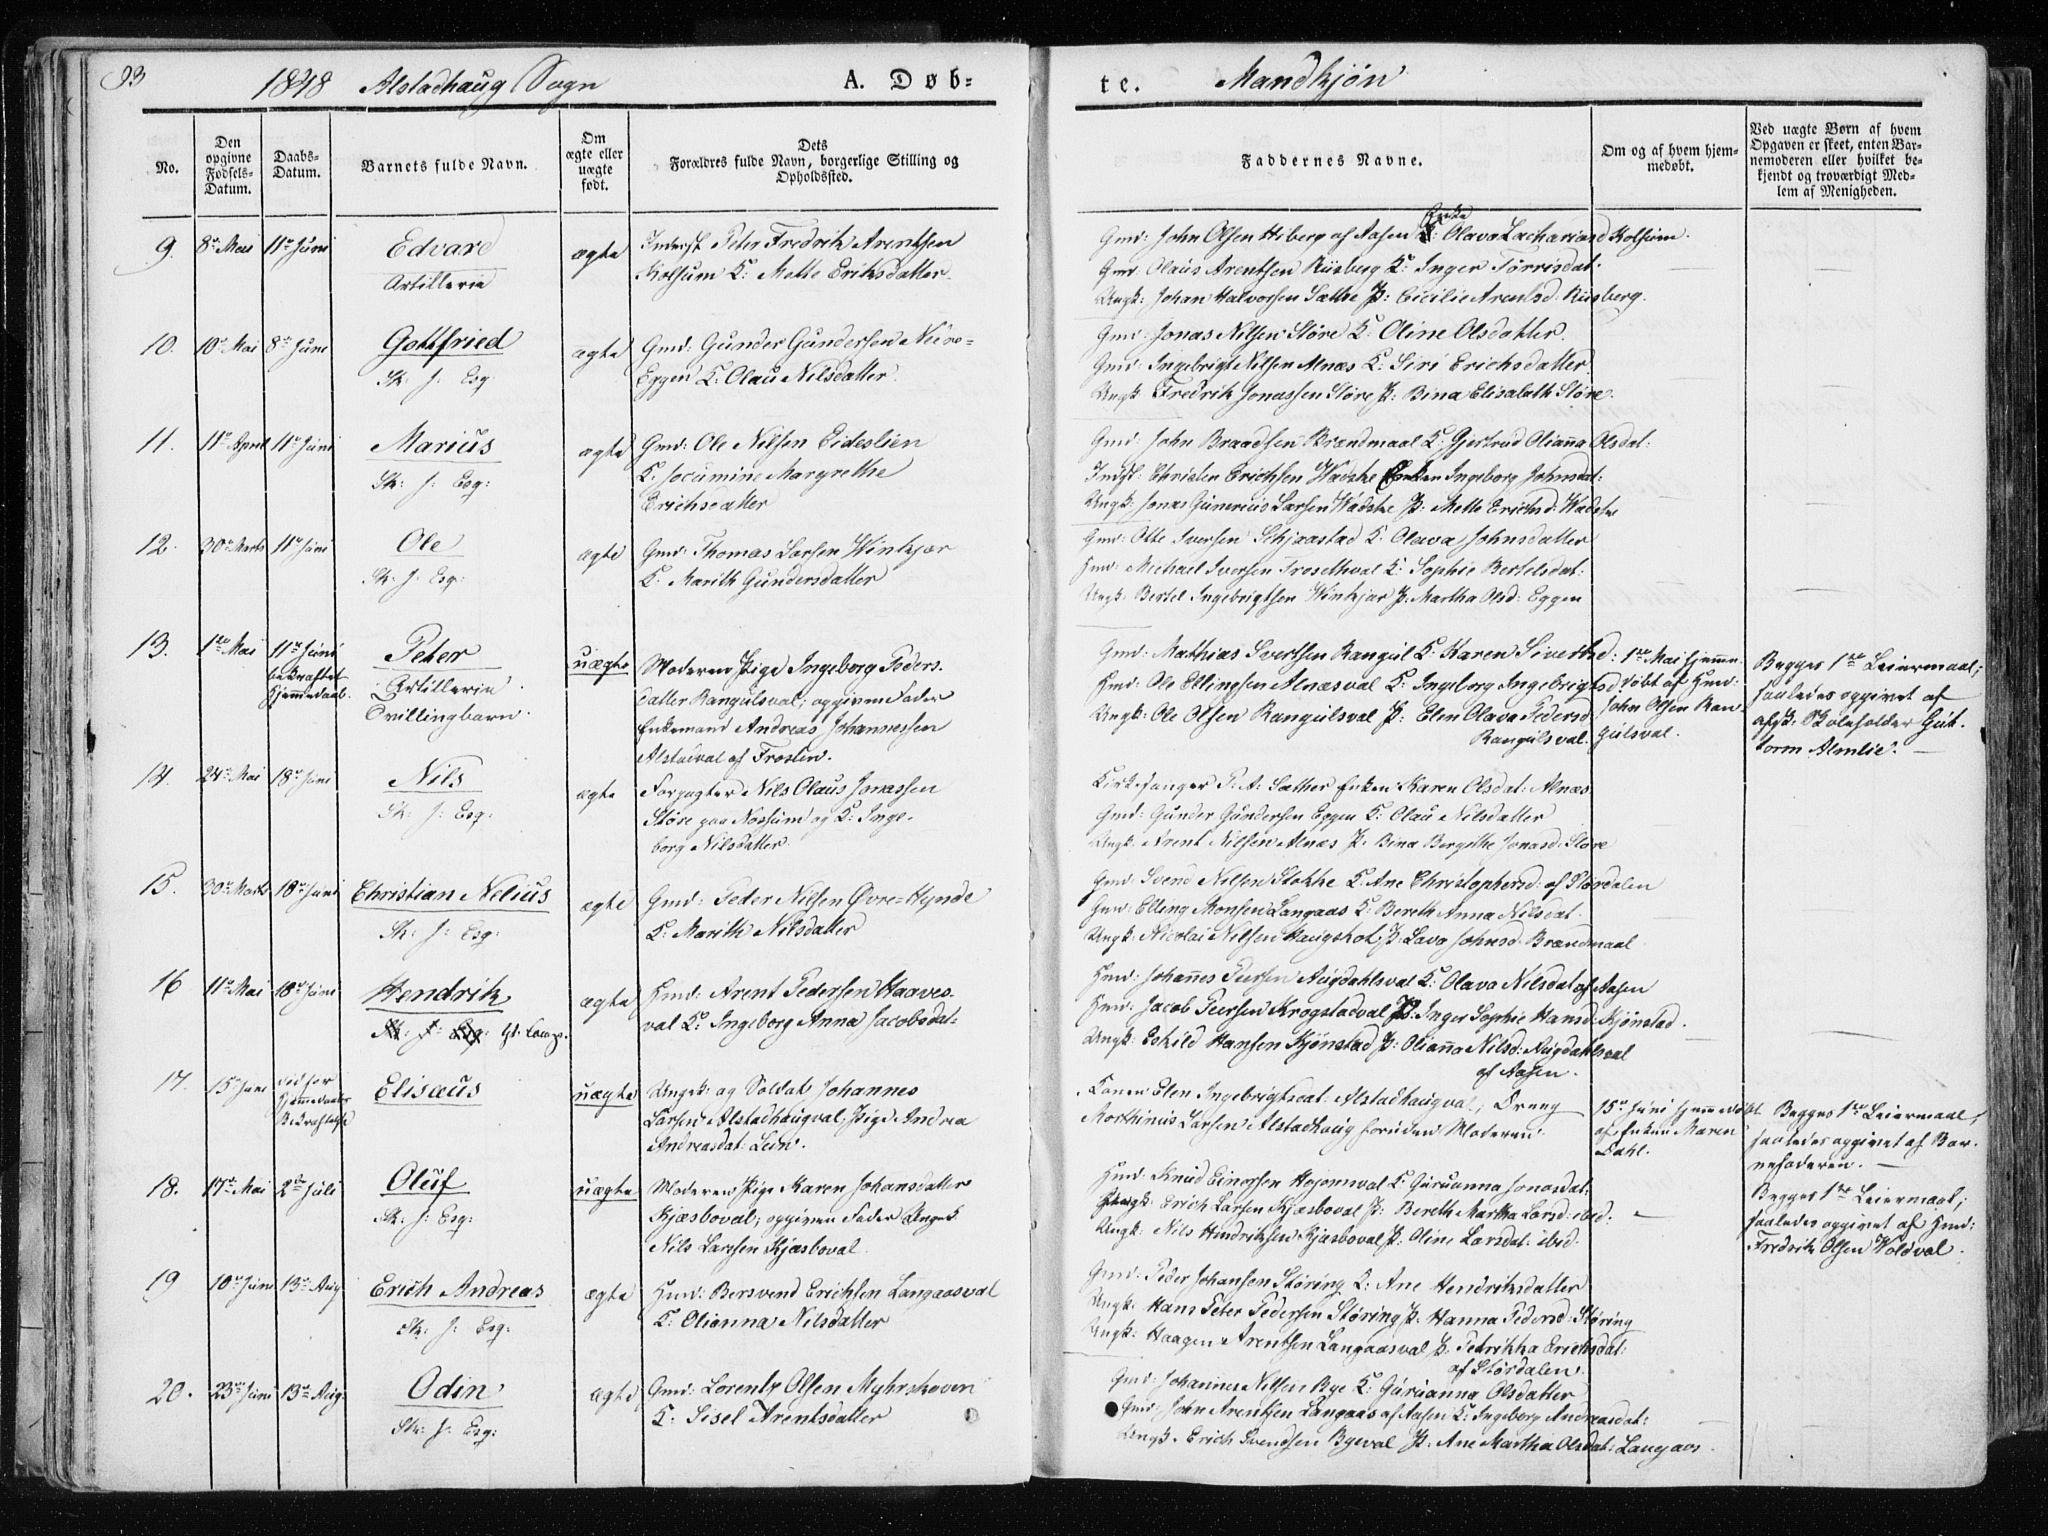 93
1848 Alstadhaug Sogn
A. Døb-
te.
Mandkjøn
No.
Den opgivne Fødsels-Datum.
Daabs-Datum.
Barnets fulde Navn.
Om ægte eller uægte født.
Dets Forældres fulde Navn, borgerlige Stilling og Opholdssted.
Faddernes Navne.
Om og af hvem hjem-medøbt.
Ved uægte Børn af hvem Opgaven er skeet, enten Bar-nemoderen eller hvilket be-kjendt og troværdigt Med-lem af Menigheden.
9. 8de Mai 11te Juni Edvard ægte Inderst Peter Fredrik Arentsen
Artillerie Kolsum K: Mette Eriksdatter
Gmd: John Olsen Hiberg af Aasen Enke Olava Zachariasd Kolsum.
Gmd Olaus Arentsen Riisberg K: Inger Torrisdat:
Ungk: Johan Halvorsen Sæthe P: Cicilie Arentsd: Riisberg.
10. 10de Mai 8de Juni Gottfried ægte Gmd: Gunder Gundersen Neire-
Sk: J: Esq: Eggen K: Olau Nilsdatter
Gmd: Jonas Nilsen Støre K: Oline Olsdatter.
Gmd: Ingebrigt Nilsen Alnæs K: Siri Erichsdatter
Ungk Fredrik Jonassen Støre P: Bina Elisabeth Støre.
11. 11te April 11te Juni Marius ægte Gmd: Ole Nilsen Eideslien
Sk: J: Esq: K: Jocumine Margrethe
Erichsdatter
Gmd: John Braadsen Brændmaal K: Gjertrud Olianna Olsdat:
Indst: Christen Erichsen Wadshe Enken Ingeborg Johnsdat:
Ungk: Jonas Gunerius Larsen Wadshe P: Mette Erichsd: Wadshe
12. 30te Marts 11te Juni Ole ægte Gmd: Thomas Larsen Winkjær
Sk: J: Esq: K: Marith Gundersdatter
Gmd: Otte Iversen Schjaastad K: Olava Johnsdatter
Hmd: Michael Iversen Trosethval K: Sophie Bertelsdat:
Ungk: Bertel Ingebrigtsen Winkjær P: Martha Olsd: Eggen
13. 1ste Mai 11te Juni bekræftet Hjemmedaab. Peter uægte Moderen Pige Ingeborg Peders-
Artillerie datter Rangulsval; opgiven Fader
Tvillingbarn. Enkemand Andreas Johannessen
Alstadval af Frosten.
Gmd: Mathias Sivertsen Rangul K: Karen Sivertsd:
Hmd: Ole Ellingsen Alnæsval K: Ingeborg Ingebrigtsd
Ungk: Ole Olsen Rangulsval P: Elen Olava Pedersd
Rangulsval.
1ste Mai hjemme-
døbt af Hmd:
John Olsen Ran-
gulsval.
Begges 1ste Leiermaal;
saaledes opgivet af
afgk: Skoleholder Gut-
torm Almlie.
14. 24de Mai 18de Juni Nils ægte Forpagter Nils Olaus Jonassen
Sk: J: Esq: Støre paa Nossum og K: Inge-
borg Nilsdatter.
Kirkesanger P: A: Sæther Enken Karen Olsdat: Alnæs
Gmd: Gunder Gundersen Eggen K: Olau Nilsdatter
Ungk: Arent Nilsen Alnæs P: Bina Bergithe Jonasd: Støre
15. 30te Marts 18de Juni Christian Nelius ægte Gmd: Peder Nilsen Øvre-Hynde
Sk: J: Esq: K: Marith Nilsdatter
Gmd: Svend Nilsen Stokke K: Ane Christophersd: af Størdalen
Gmd: Elling Monsen Langaas K: Bereth Anna Nilsdat.
Ungk: Nicolai Nilsen Haugshot P: Lava Johnsd. Brændmaal
16 11te Mai 18de Juni Hendrik ægte Hmd: Arent Pedersen Haaves-
Sk: J: Esq: val K: Ingeborg Anna Jacobsdat:
Hmd: Johannes Peersen Augdahlsval K: Olava Nilsdat af Aasen
Hmd: Jacob Peersen Krogstadval P: Inger Sophie Hansd: Kjønstad.
Ungk: Eskild Hansen Kjønstad P: Olianna Nilsd: Augdahlsval
af Aasen.
17. 15de Juni Elisæus uægte Ungk: og Soldat Johannes
Larsen Alstadhaugval, Pige Andrea
Andreasdat: Lein.
Konen Elen Ingebrigtsdat: Alstadhaugval, Dreng
Morthinus Larsen Alstadhaug foruden Moderen.
15de Juni hjemmedøbt
af Enken Maren
Dahl.
Begges 1ste Leiermaal,
saaledes opgivet af Bar-
nefaderen.
18. 17de Mai 2den Juli Oluf uægte Moderen Pige Karen Johansdatter
Sk: J: Esq: Kjæsboval; opgiven Fader Ungk
Nils Larssen Kjæsboval.
Hmd: Knud Einersen Hojemval K: Guruanna Jonasdat:
Ungk: Erich Larsen Kjæsboval P: Bereth Martha Larsd: ibid.
Ungk: Nils Hendriksen Kjæsboval P: Oline Larsdat: ibid.
Begges 1ste Leiermaal;
saaledes opgivet af Hmd:
Fredrik Olsen Woldval.
19 10de Juni 13de Aug Erich Andreas ægte Hmd: Bersvend Erichsen Langaasval
Sk: J: Esq: K: Olianna Nilsdatter
Gmd: Peder Johansen Støring K: Ane Hendriksdatter
Ungk: Hans Peter Pedersen Støring P: Hanna Pedersd: Støring
Ungk: Haagen Arentsen Langaasval P: Petrikka Erichsdat:
af Størdalen.
20. 23de Juni 13de Aug: Odin ægte Gmd: Lorents Olsen Myhrskoven
Sk: J: Esq: K: Sisel Arentsdatter
Gmd: Johannes Nilsen Bye K: Guruanna Olsdatter
Gmd: John Arentsen Langaas af Aasen K: Ingeborg Andreasdat:
Ungk: Erich Svendsen Byeval P: Ane Martha Olsdat: Langaas.